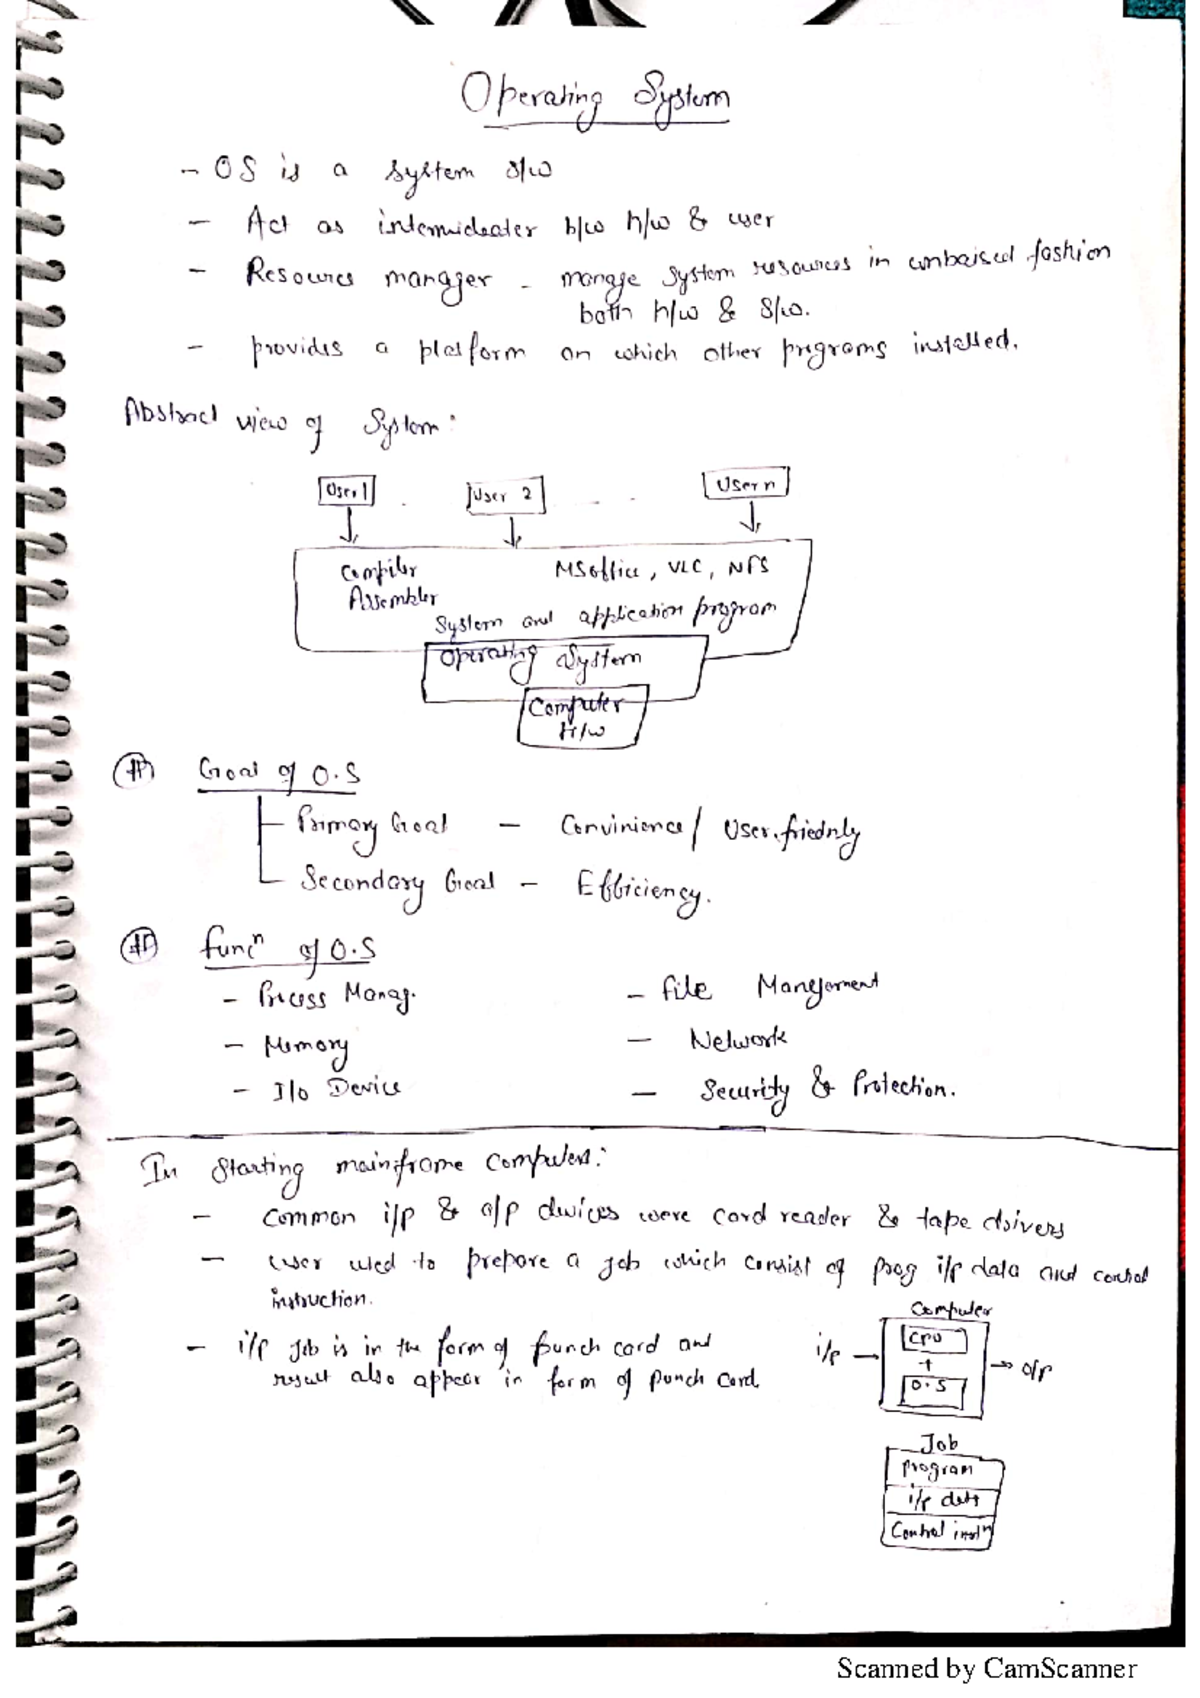 Operating System
- OS is a system s/w
- Act as intermideater b/w h/w & user
- Resources manager - manage system resources in unbaised fashion
both h/w & S/w.
- provides a platform on which other programs installed.
Abstract view of System:
User 1 . User 2 . . User n
Compiler MS office, VLC, NFS
Assembler
System and application program
Operating System
Computer
H/w
# Goal of O.S
Primary Goal - Convinience / User.friednly
Secondary Goal - Efficiency.
# funcⁿ of O.S
- Process Manag. - File Mangement
- Memory - Network
- I/o Device - Security & Protection.
In starting mainframe computers:
- Common i/p & o/p devices were card reader & tape drivers
- user used to prepare a job which consist of prog i/p data and control
instruction.
- i/p Job is in the form of punch card and
result also appear in form of punch card
Computer
i/p → CPU → o/p
+
O.S
Job
program
i/p data
Control instⁿ
Scanned by CamScanner